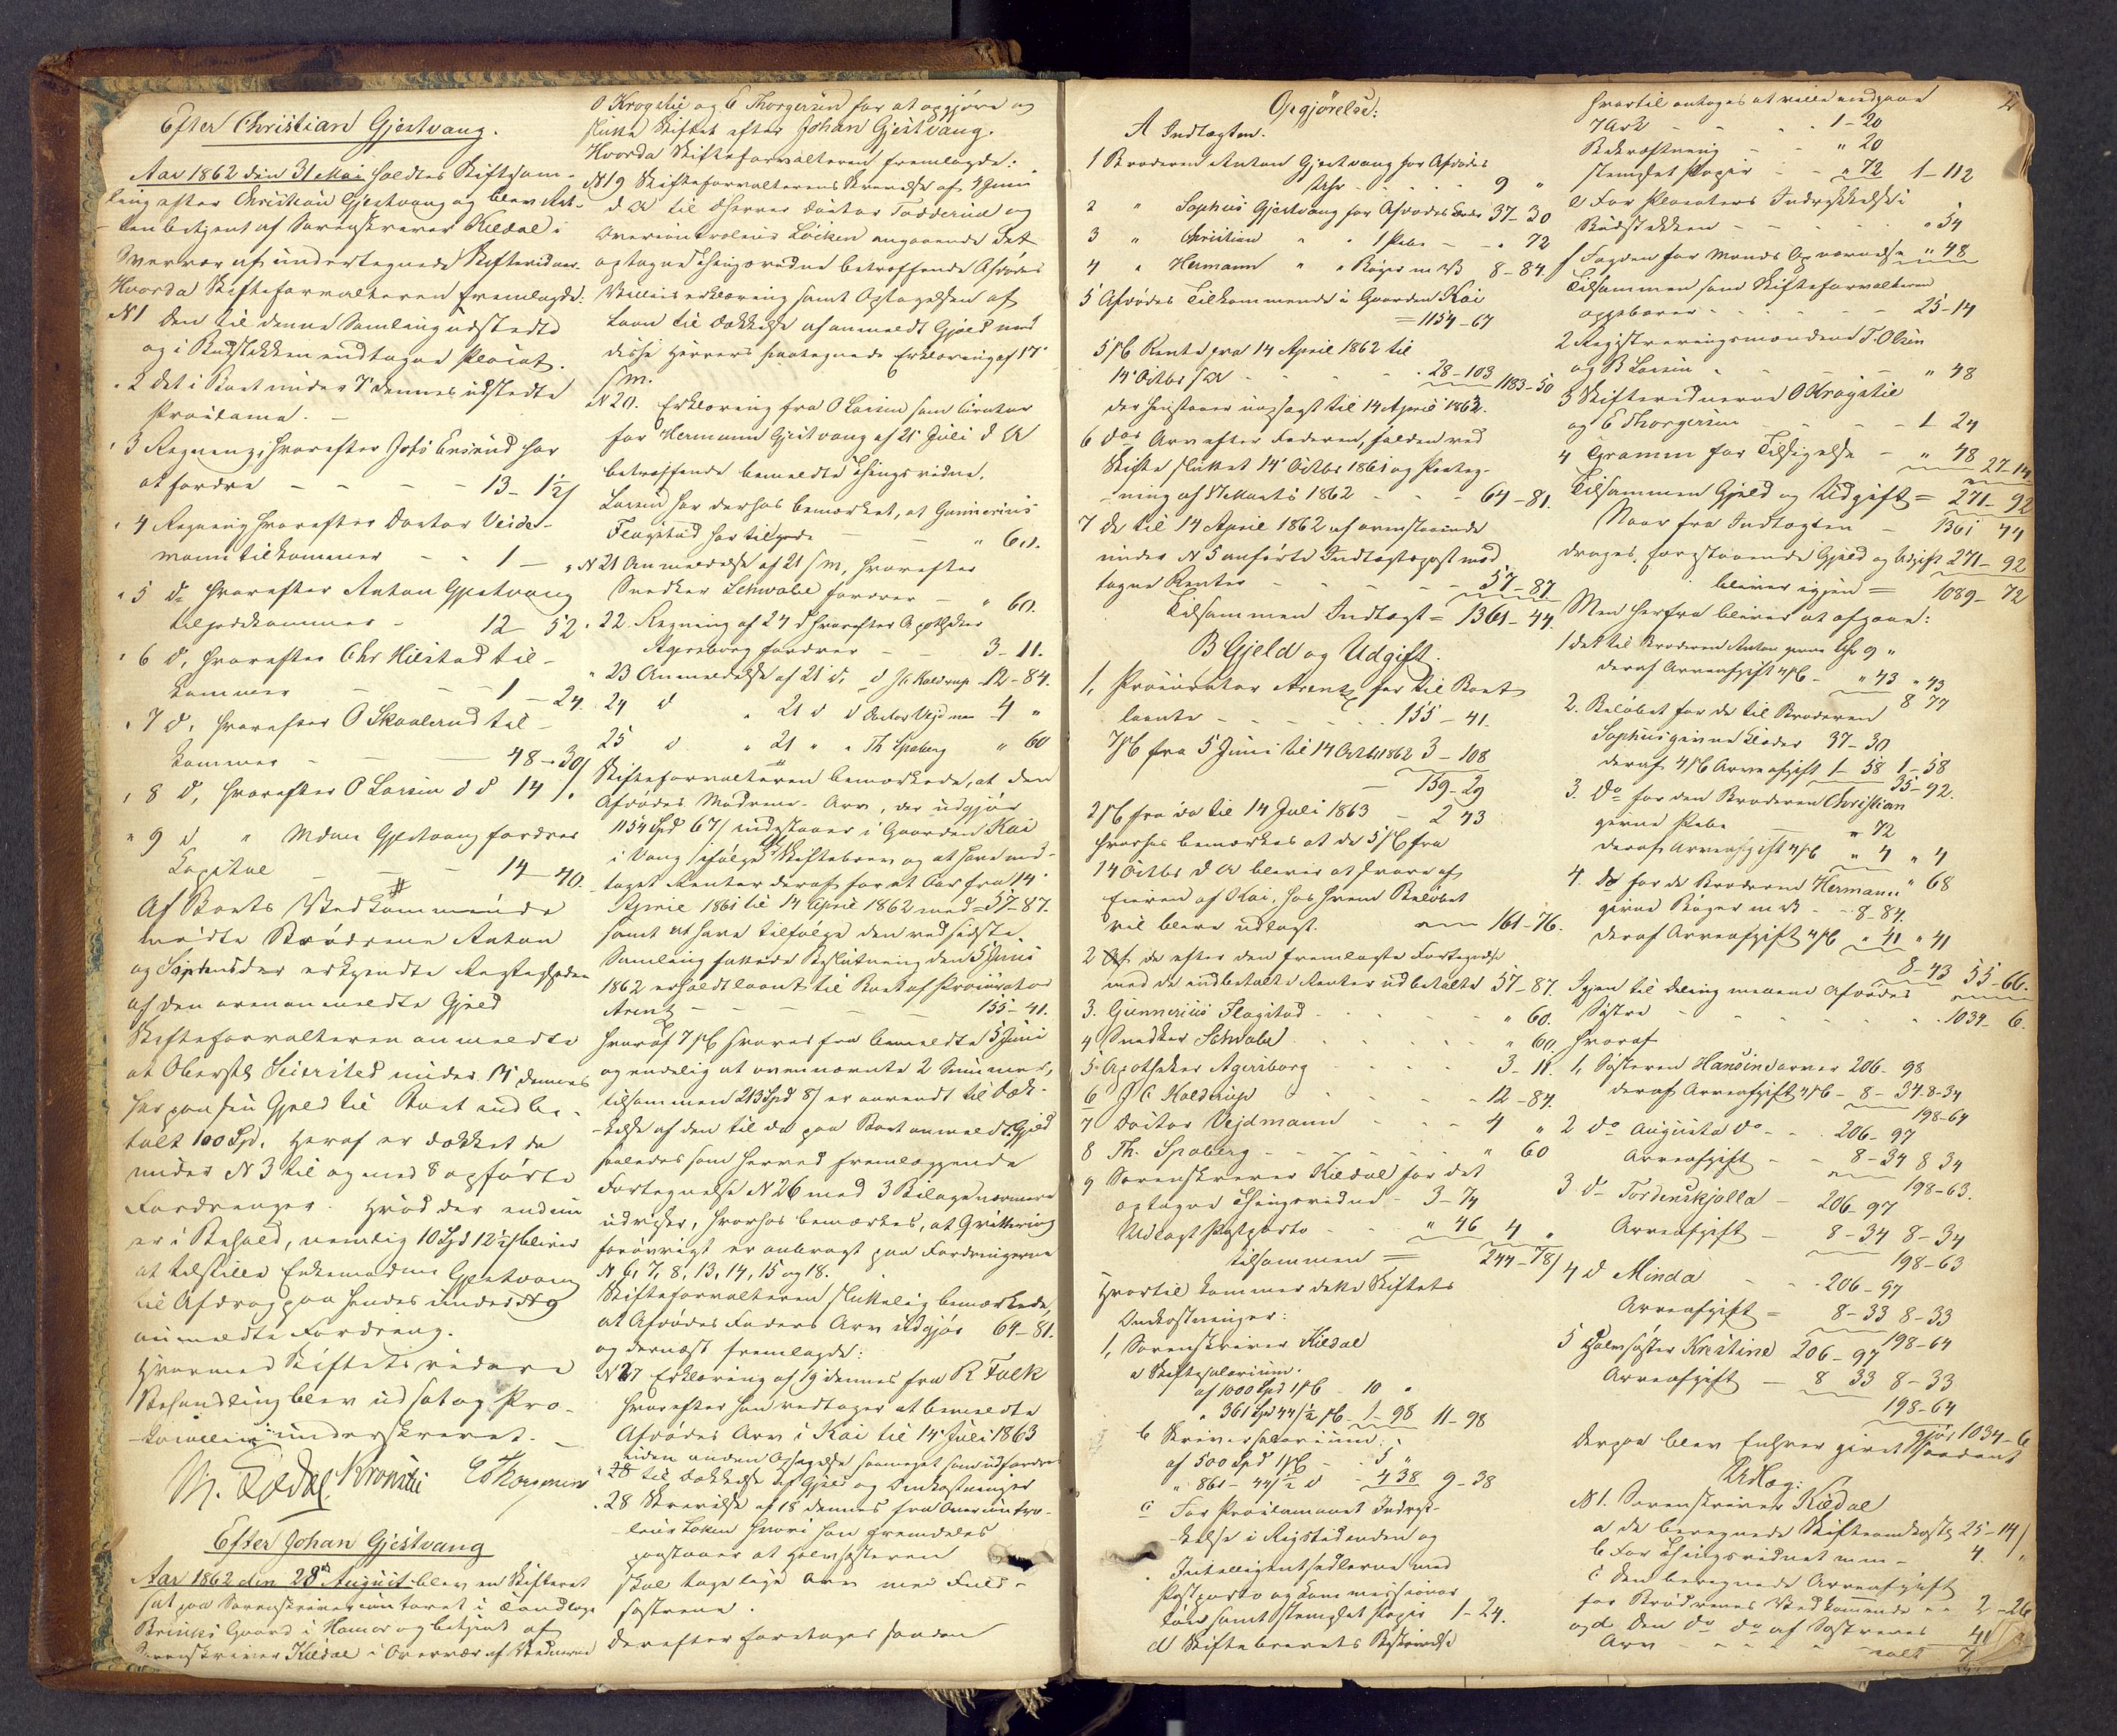 Efter Christian Gjestvang.
Aar 1862 den 31 Mai holdtes Skiftesam-
ling efter Christian Gjestvang og blev Ret-
ten betjent af Sorenskriver Kildal i
Overvær af undertegnede Skiftevidner.
Hvorda Skifteforvalteren fremlagde:
N 1 den til denne Samling udstedte
og i Budstikken indtagne Placat.
" 2 det i Boet under 7 dennes udstedte
Proclama. -
" 3 Regning, hvorefter Johs Enerud har
at fordre - - - 13 - 1½ /
" 4 Regning hvorefter Doctor Veide-
mann tilkommer - - 1 - "
" 5 do hvorefter Anton Gjestvang
tilgodekommer - 12 - 52.
" 6 d, hvorefter Chr Hilstad til-
kommer - - - 1 - 24.
" 7 d, hvorefter O Skaalerud til-
kommer - - 48 - 30/
" 8 d, hvorefter O Larsen d d 14 /.
" 9 d " Madam Gjestvang fordrer
Capital - - - 14 - 40.
Af Boets Vedkommende
mødte Brødrene Anton
og Sophus der erkjendte Rigtigheden
af den ovenanmeldte Gjeld
Skifteforvalteren anmeldte
at Oberstl Seiersted under 14 dennes
har paa sin Gjeld til Boet indbe-
talt 100 Spd. Heraf er dækket de
under N 3 til og med 8 opførte
Fordringer. Hvad der endnu
er i Behold, nemlig 10 Spd 12½ / bliver
at tilstille Enkemadam Gjestvang
til Afdrag paa hendes under N 9
anmeldte Fordring.
Hvormed Skiftets videre
Behandling blev udsat og Pro-
tocollen underskrevet. -
M. Kildal Krogstie E Thorgersen
Efter Johan Gjestvang
Aar 1862 den 28de August blev en Skifteret
sat paa Sorenskrivercontoret i
Brinks Gaard i Hamar og betjent af
Sorenskriver Kildal i Overvær af Vidnerne
O Krogstie og E Thorgersen for at opgjøre og
slutte Skiftet efter Johan Gjestvang.
Hvorda Skifteforvalteren fremlagde:
N 19 Skifteforvalterens Skrivelse af 4 Juni
d A til dHerrer Doctor Todderud og
Overcontroleur Løcken angaaende det
optagne Thingsvidne betræffende Afdødes
Villieserklæring samt Optagelsen af
Laan til Dækkelse af anmeldt Gjeld med
disse Herrers paategnede Erklæring af 17
s/m.
N 20. Erklæring fra O Larsen som Curator
for Hermann Gjestvang af 21 Juli d A
betræffende bemeldte Thingsvidne.
Larsen har derhos bemærket, at Gunnerius
Flagstad har tilgode - - " 60.
" N 21 Anmeldelse af 21 s/m, hvorefter
Snedker Schwabe fordrer - " 60.
" 22. Regning af 24 d hvorefter Apotheker
Ageriborg fordrer - - 3 - 11.
" 23 Anmeldelse af 21 d, d J C Koldrup - 12 - 84.
24 d " 21 d d Doctor Vejdman 4 "
25 d " 21 " " Th Spaberg " 60
Skifteforvalteren bemærkede, at den
Afdødes Mødrene- Arv, der udgjør
1154 Spd 67/ indestaaer i Gaarden Kai
i Vang ifølge Skiftebrev og at have mod-
taget Renter deraf for et Aar fra 14
April 1861 til 14 April 1862 med = 57 - 87.
samt at have tilfølge den ved sidste
Samling fattede Beslutning den 5 Juni
1862 erholdt laant til Boet af Procurator
Arentz - - - - - 155 - 41.
hvoraf 7 pC svares fra bemeldte 5 Juni
og endelig at ovennævnte 2 Summer,
tilsammen 213 Spd 8/ er anvendt til Dæk-
kelse af den til da paa Boet anmeldt Gjeld
saaledes som herved fremlæggende
Fortegnelse N 26 med 3 Bilage nærmere
udviser, hvorhos bemærkes, at Qvittering
forøvrigt er anbragt paa Fordringerne
N 6, 7, 8, 13, 14, 15 og 18.
Skifteforvalteren sluttelig bemærkede,
at Afdødes Faders Arv udgjør 64 - 81.
og dernæst fremlagde:
N 27 Erklæring af 19 dennes fra R Falk
hvorefter han vedtager at bemeldte
Afdødes Arv i Kai til 14 Juli 1863
uden anden Opsigelse saameget som udfordres
til Dækkelse af Gjeld og Omkostninger
" 28 Skrivelse af 18 dennes fra Overcontro-
leur Løken hvori han fremdeles
paastaaer at Halvsøsteren
skal tage lige Arv med Fuld-
søstrene.
Derefter foretoges saadan
Opgjørelse:
A Indtægten.
1 Broderen Anton Gjestvang for Afdødes
Uhr - - - - 9 "
2 " Sophus Gjestvang for Afdødes Klæder 37 - 30
3 " Christian " " 1 Pibe - - " 72
4 " Hermann " " Bøger m B 8 - 84.
5 Afdødes Tilkommende i Gaarden Kai
= 1154 - 67
5 pC Rente fra 14 April 1862 til
14 Octbr s A - - - 28 - 103 1183 - 50
der henstaaer uopsagt til 14 April 1863.
6 do Arv efter Faderen, falden ved
Skifte sluttet 14 Octbr 1861 og Paateg-
ning af 8 Marts 1862 - - - 64 - 81.
7 de til 14 April 1862 af ovenstaaende
under N 5 anførte Indtægtspost mod-
tagne Renter - - - - 57 - 87.
Tilsammen Indtægt = 1361 - 44.
B Gjeld og Udgift.
1, Procurator Arentz for til Boet
laante - - - - 155 - 41.
7 pC fra 5 Juni til 14 Octbr 1862 3 - 108
159 - 29
2 pC fra da til 14 Juli 1863 - 2 43
hvorhos bemærkes at de 5 pC fra
14 Octbr d A bliver at svare af
Eieren af Kai, hos hvem Beløbet
vil blive udlagt. 161 - 76.
2 de efter den fremlagte Fortegnelse
med de indbetalte Renter udbetalte 57 - 87.
3. Gunnerius Flagstad - - - - " 60.
4 Snedker Schwabe - - - - " 60.
5 Apotheker Ageriborg - - - - 3 - 11.
6 J C Koldrup - - - - 12 - 84.
7 Doctor Vejdmann - - - 4 "
8 Th. Spaberg - - - - " 60
9 Sorenskriver Kildal for det
optagne Thingsvidne - 3 - 74
Udlagt Postporto - - " 46 4 "
tilsammen = 244 - 78/
Hvortil kommer dette Skiftets
Omkostninger:
1, Sorenskriver Kildal
a Skiftesalarium.
af 1000 Spd 1 pC - 10 "
" 361 Spd 44/ ½ pC - 1 - 98 11 - 98
b Skriversalarium:
af 500 Spd 1 pC - - 5 "
" 861 - 44/ ½ d - 4 38 9 - 38
c For Proclamaets Indryk-
kelse i Rigstidenden og
Intelligentsedlerne med
Postporto og Commissionair
løn samt stemplet Papir 1 - 24.
d Skiftebrevets Beskrivelse
hvortil antages at ville medgaae
7 Ark - - - 1 - 20
Bekræftning - - " 20
stemplet Papir - - " 72 1 - 112
e For Placaters Indrykkelse i
Budstikken - - - - " 54
f Fogden for Mænds Opnævnelse " 48
Tilsammen som Skifteforvalteren
oppebærer - - - - 25 - 14
2 Registreringsmændene T. Olsen
og B Larsen - - - - " 48
3 Skiftevidnerne O Krogstie
og E Thorgersen - - - 1 24
4 Gramm for Tilsigelse - " 48 27 - 14
Tilsammen Gjeld og Udgift = 271 - 92
Naar fra Indtægten - 1361 44
drages foranstaaende Gjeld og Udgift 271 - 92
bliver igjen = 1089 - 72
Men herfra bliver at afgaae:
1 det til Broderen Anton givne Uhr 9 "
deraf Arveafgift 4 pC - " 43 " 43
8 77
2. Beløbet for de til Broderen
Sophus givne Klæder 37 - 30
deraf 4 pC Arveafgift 1 - 58 1 - 58
35 - 92.
3. Do for den Broderen Christian
givne Pibe " 72
deraf Arveafgift 4 pC " 4 " 4
" 68
4. do for de Broderen Hermann
givne Bøger m B - - 8 - 84.
deraf Arveafgift 4 pC " 41 " 41
8 - 43 55 - 66.
Igjen til Deling mellem Afdødes
Søstre - - - - 1034 - 6.
hvoraf
1, Søsteren Hansine arver 206 - 98
deraf Arveafgift 4 pC - 8 - 34 8 - 34
198 - 64
2 do Augusta do - - 206 - 97
Arveafgift - - 8 - 34 8 34
198 - 63.
3. do Tordenskjolda - 206 - 97
Arveafgift - 8 - 34 8 - 34
198 - 63
4 d Minda - - 206 - 97
Arveafgift = 8 - 33 8 - 33
198 - 64
5 Halvsøster Kristine 206 - 97
Arveafgift - 8 33 8 - 33
198 - 64
gjør 1034 - 6
Derpaa blev Enhver givet saadant
Udlæg:
N 1. Sorenskriver Kildal
a de beregnede Skifteomkostg 25 - 14/
b For Thingsvidnet m m - 4. "
c den beregnede Arveafgift
for Brødrenes Vedkommende " " 2 - 26
og d Den do do af Søstrenes 41
Arv - - - -